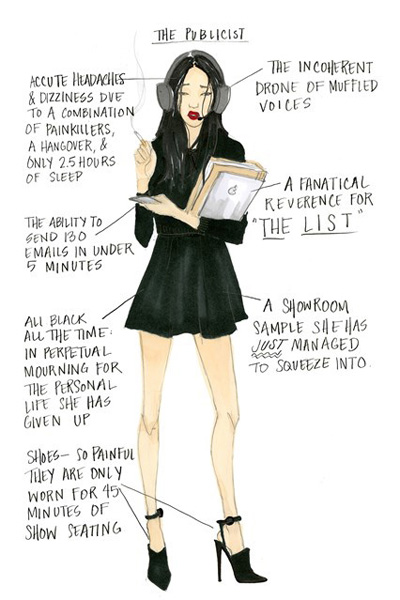 THE PUBLICIST
ACCUTE HEADACHES
& DIZZINESS DUE
TO A COMBINATION
OF PAINKILLERS,
A HANGOVER, &
ONLY 2.5 HOURS
OF SLEEP
THE INCOHERENT
DRONE OF MUFFLED
VOICES
A FANATICAL
REVERENCE FOR
"THE LIST"
THE ABILITY TO
SEND 130
EMAILS IN UNDER
5 MINUTES
ALL BLACK
ALL THE TIME:
IN PERPETUAL
MOURNING FOR
THE PERSONAL
LIFE SHE HAS
GIVEN UP
A SHOWROOM
SAMPLE SHE HAS
JUST MANAGED
TO SQUEEZE INTO.
SHOES— SO PAINFUL
THEY ARE ONLY
WORN FOR 45
MINUTES OF
SHOW SEATING